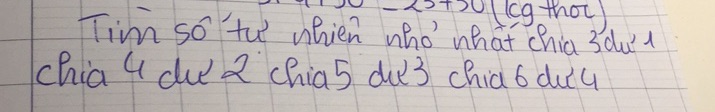 -25+50 (kg thóc)
Tìm số tự nhiên nhỏ nhất chia 3 dư 1
chia 4 dư 2 chia 5 dư 3 chia 6 dư 4